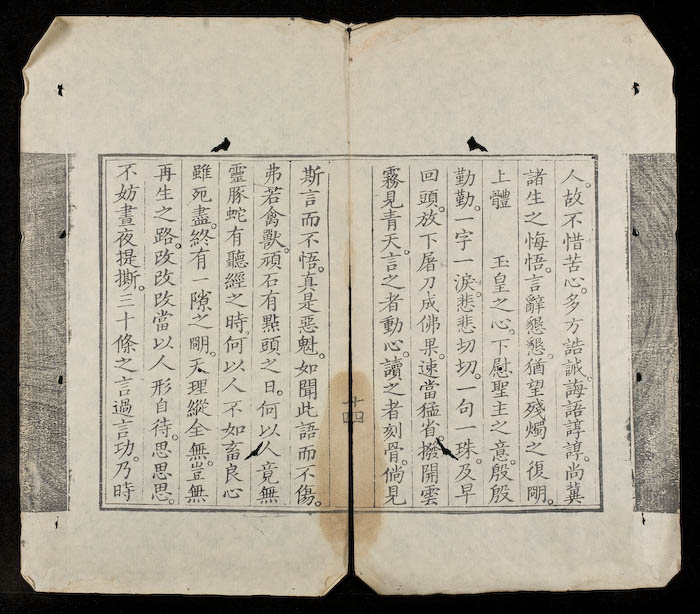 人。故不惜苦心。多方誥誡。誨語諄諄。尚冀
諸生之悔悟。言辭懇懇。猶望殘燭之復明。
上體　玉皇之心。下慰聖主之意。殷殷
勤勤。一字一淚。悲悲切切。一句一珠。及早
回頭。放下屠刀成佛果。速當猛省。撥開雲
霧見青天。言之者動心。讀之者刻骨。倘見
十四
斯言而不悟。真是惡魁。如聞此語而不傷。
弗若禽獸。頑石有點頭之日。何以人竟無
靈。豚蛇有聽經之時。何以人不如畜。良心
雖死盡。終有一隙之明。天理縱全無。豈無
再生之路。改改改。當以人形自待。思思思。
不妨晝夜提撕。三十條之言過言功。乃時